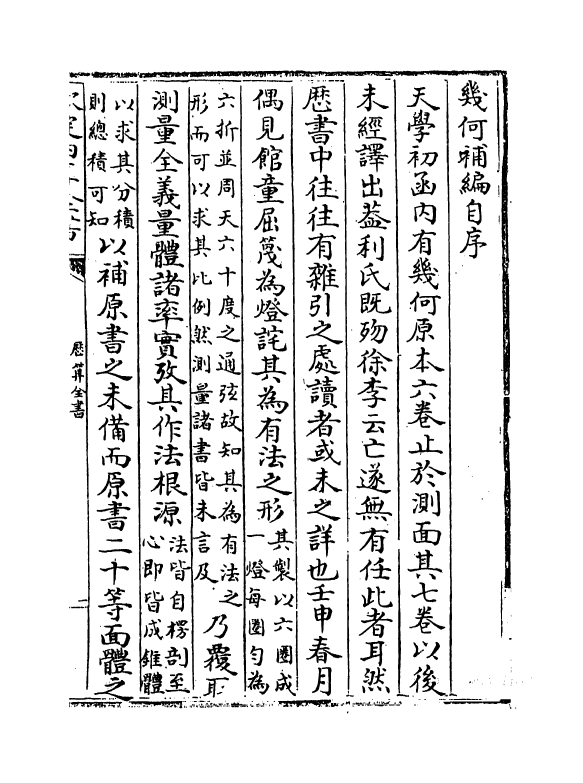 幾何補編自序
天學初函內有幾何原本六卷止於測面其七卷以後
未經譯出葢利氏既歿徐李云亡遂無有任此者耳然
厯書中往往有雜引之處讀者或未之詳也壬申春月
偶見館童屈篾為燈詫其為有法之形
其製以六圈成
一燈每圈勻為
六折並周天六十度之通弦故知其為有法之
形而可以求其比例然測量諸書皆未言及
乃覆取
測量全義量體諸率實攷其作法根源
法皆自楞剖至
心即皆成錐體
以求其分積
則總積可知
以補原書之未備而原書二十等面體之
厯算全書